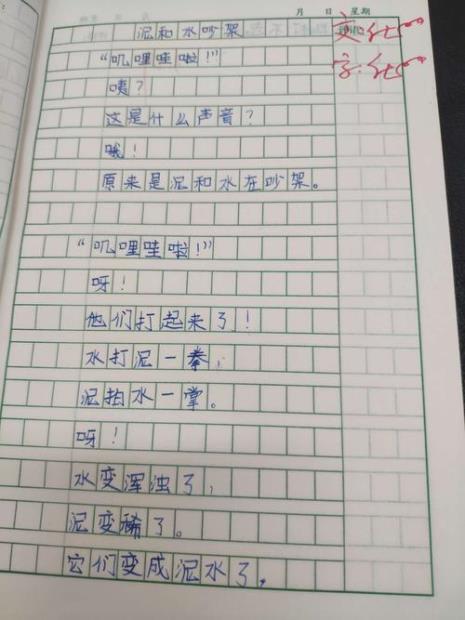 月 日 星期
泥和水吵架
“叽哩哇啦!”
咦?
这是什么声音?
哦!
原来是泥和水在吵架。
“叽哩哇啦!”
呀!
他们打起来了!
水打泥一拳,
泥拍水一掌。
呀!
水变浑浊了,
泥变稀了。
它们变成泥水了,